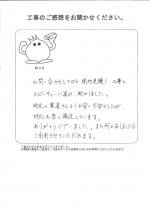 工事のご感想をお聞かせください。
お問い合わせしてから現地見積り、工事と
スピーディーに進み助かりました。
他社の業者さんよりお安い予算でしたが
対応も良く満足しています。
ありがとうございました。また何かありましたら
ご利用させていただきます。